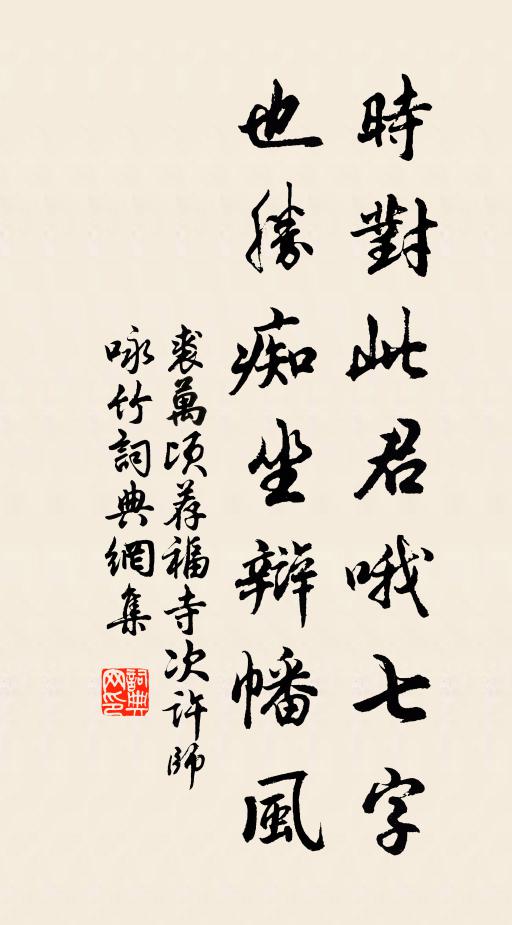 時對此君哦七字
也勝痴坐辯幡風
裘萬頃荐福寺次許師
咏竹詞典網集
詞典网印